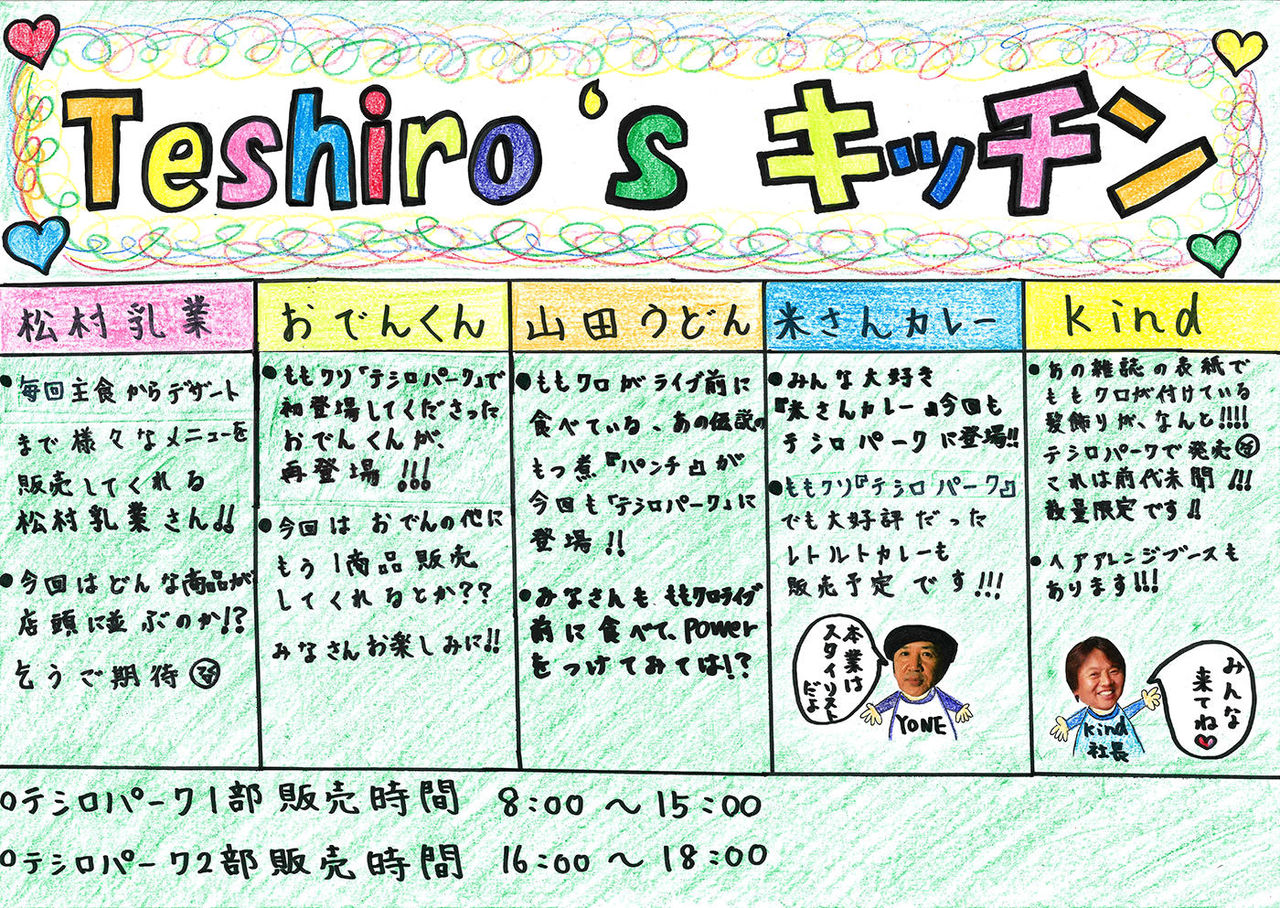 Teshiro's キッチン
松村乳業
・毎回主食からデザート
まで様々なメニューを
販売してくれる
松村乳業さん!!
・今回はどんな商品が
店頭に並ぶのか!?
乞うご期待
おでんくん
・ももクリ「テシロパーク」で
初登場してくださった
おでんくんが、
再登場!!!
・今回はおでんの他に
もう1商品販売
してくれるとか??
みなさんお楽しみに!!
山田うどん
・ももクロがライブ前に
食べている、あの伝説の
もつ煮『パンチ』が
今回も「テシロパーク」に
登場!!
・みなさんも ももクロライブ
前に食べて、Power
をつけてみては!?
米さんカレー
・みんな大好き
『米さんカレー』今回も
テシロパークに登場!!
・ももクリ『テシロパーク』
でも大好評だった
レトルトカレーも
販売予定です!!!
本業は
スタイリスト
だよ
YONE
kind
・あの雑誌の表紙で
ももクロが付けている
髪飾りが、なんと!!!!
テシロパークで発売
これは前代未聞!!!
数量限定です!!
・ヘアアレンジブースも
あります!!!
みんな
来てね
kind
社長
○テシロパーク1部販売時間 8:00〜15:00
○テシロパーク2部販売時間 16:00〜18:00